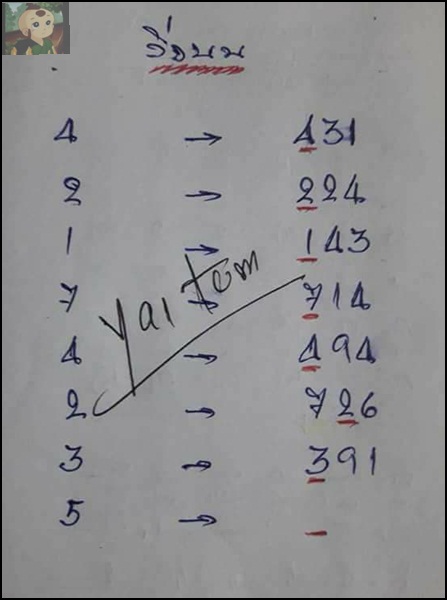 วิ่งบน
4 → 431
2 → 224
1 → 143
7 → 714
Yai Tom
4 → 494
2 → 726
3 → 391
5 → –